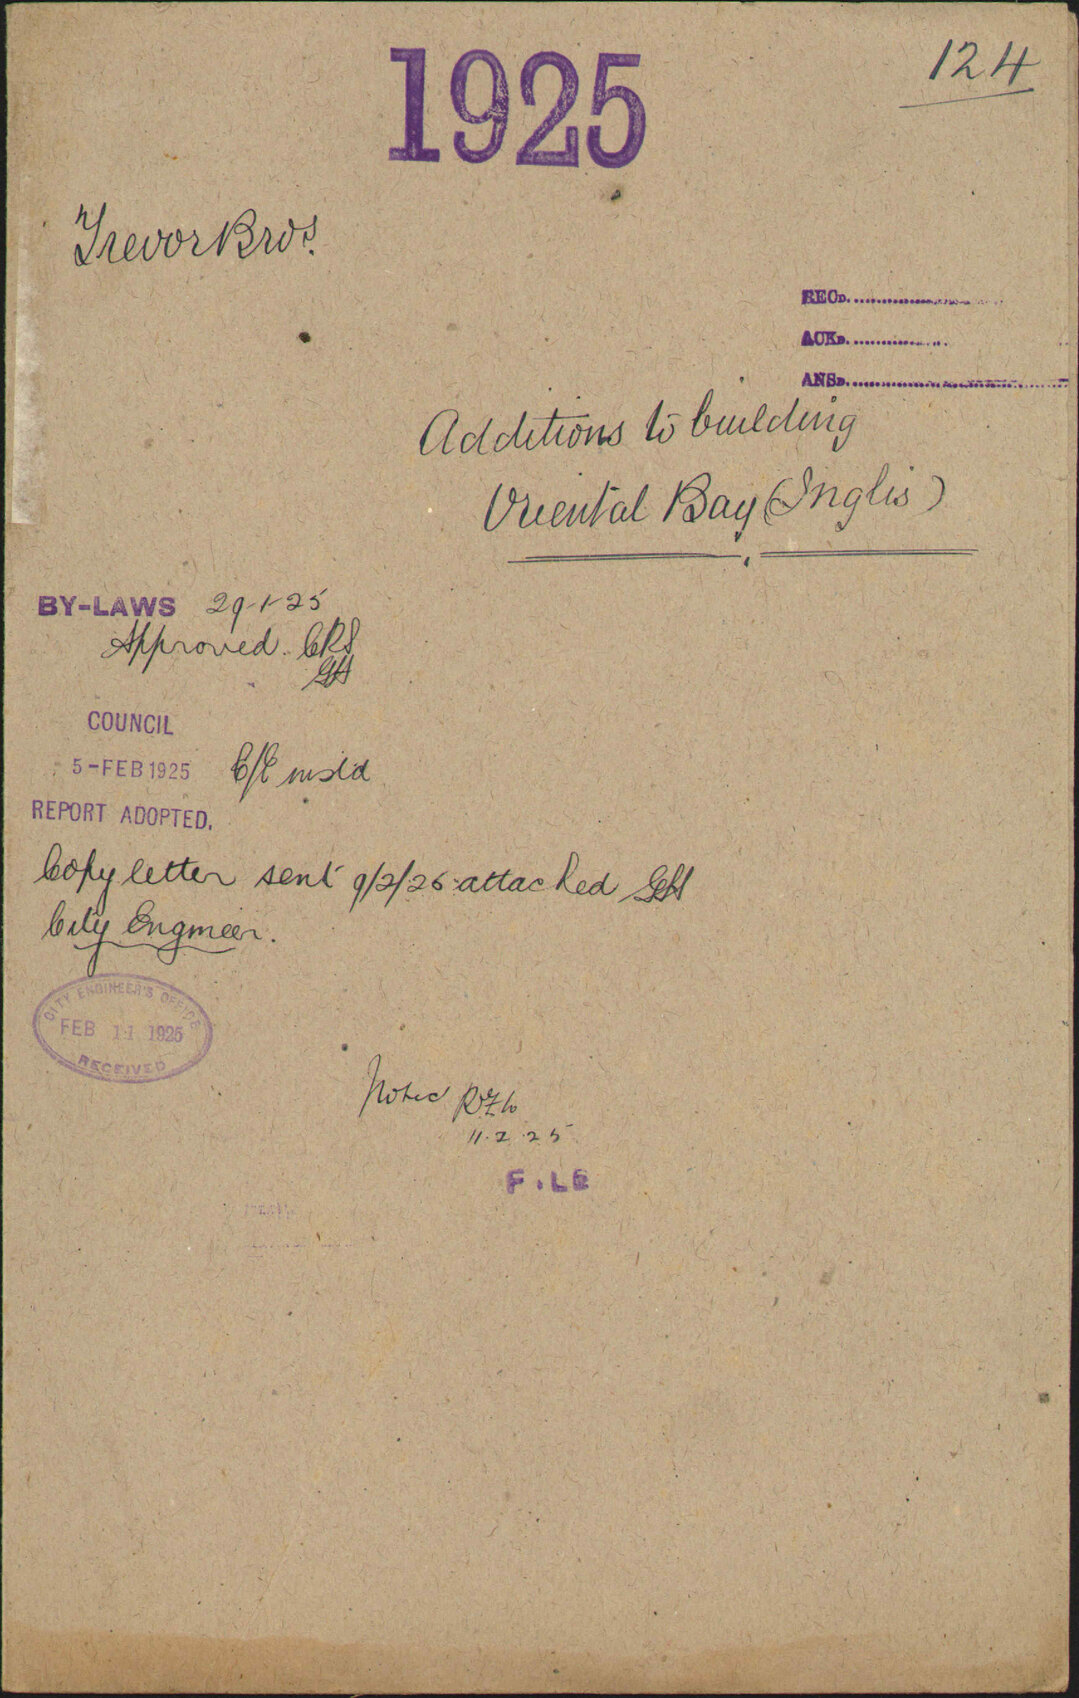 1925
124
Trevor Bros.
RECD.
ACKD.
ANSD.
Additions to building
Oriental Bay (Inglis)
BY-LAWS 29-1-25
Approved.
COUNCIL
5-FEB 1925 C/E instd
REPORT ADOPTED.
Copy letter sent 9/2/25 attached
City Engineer.
CITY ENGINEER'S OFFICE
FEB 11 1925
RECEIVED
Noted
11.2.25
F.LE